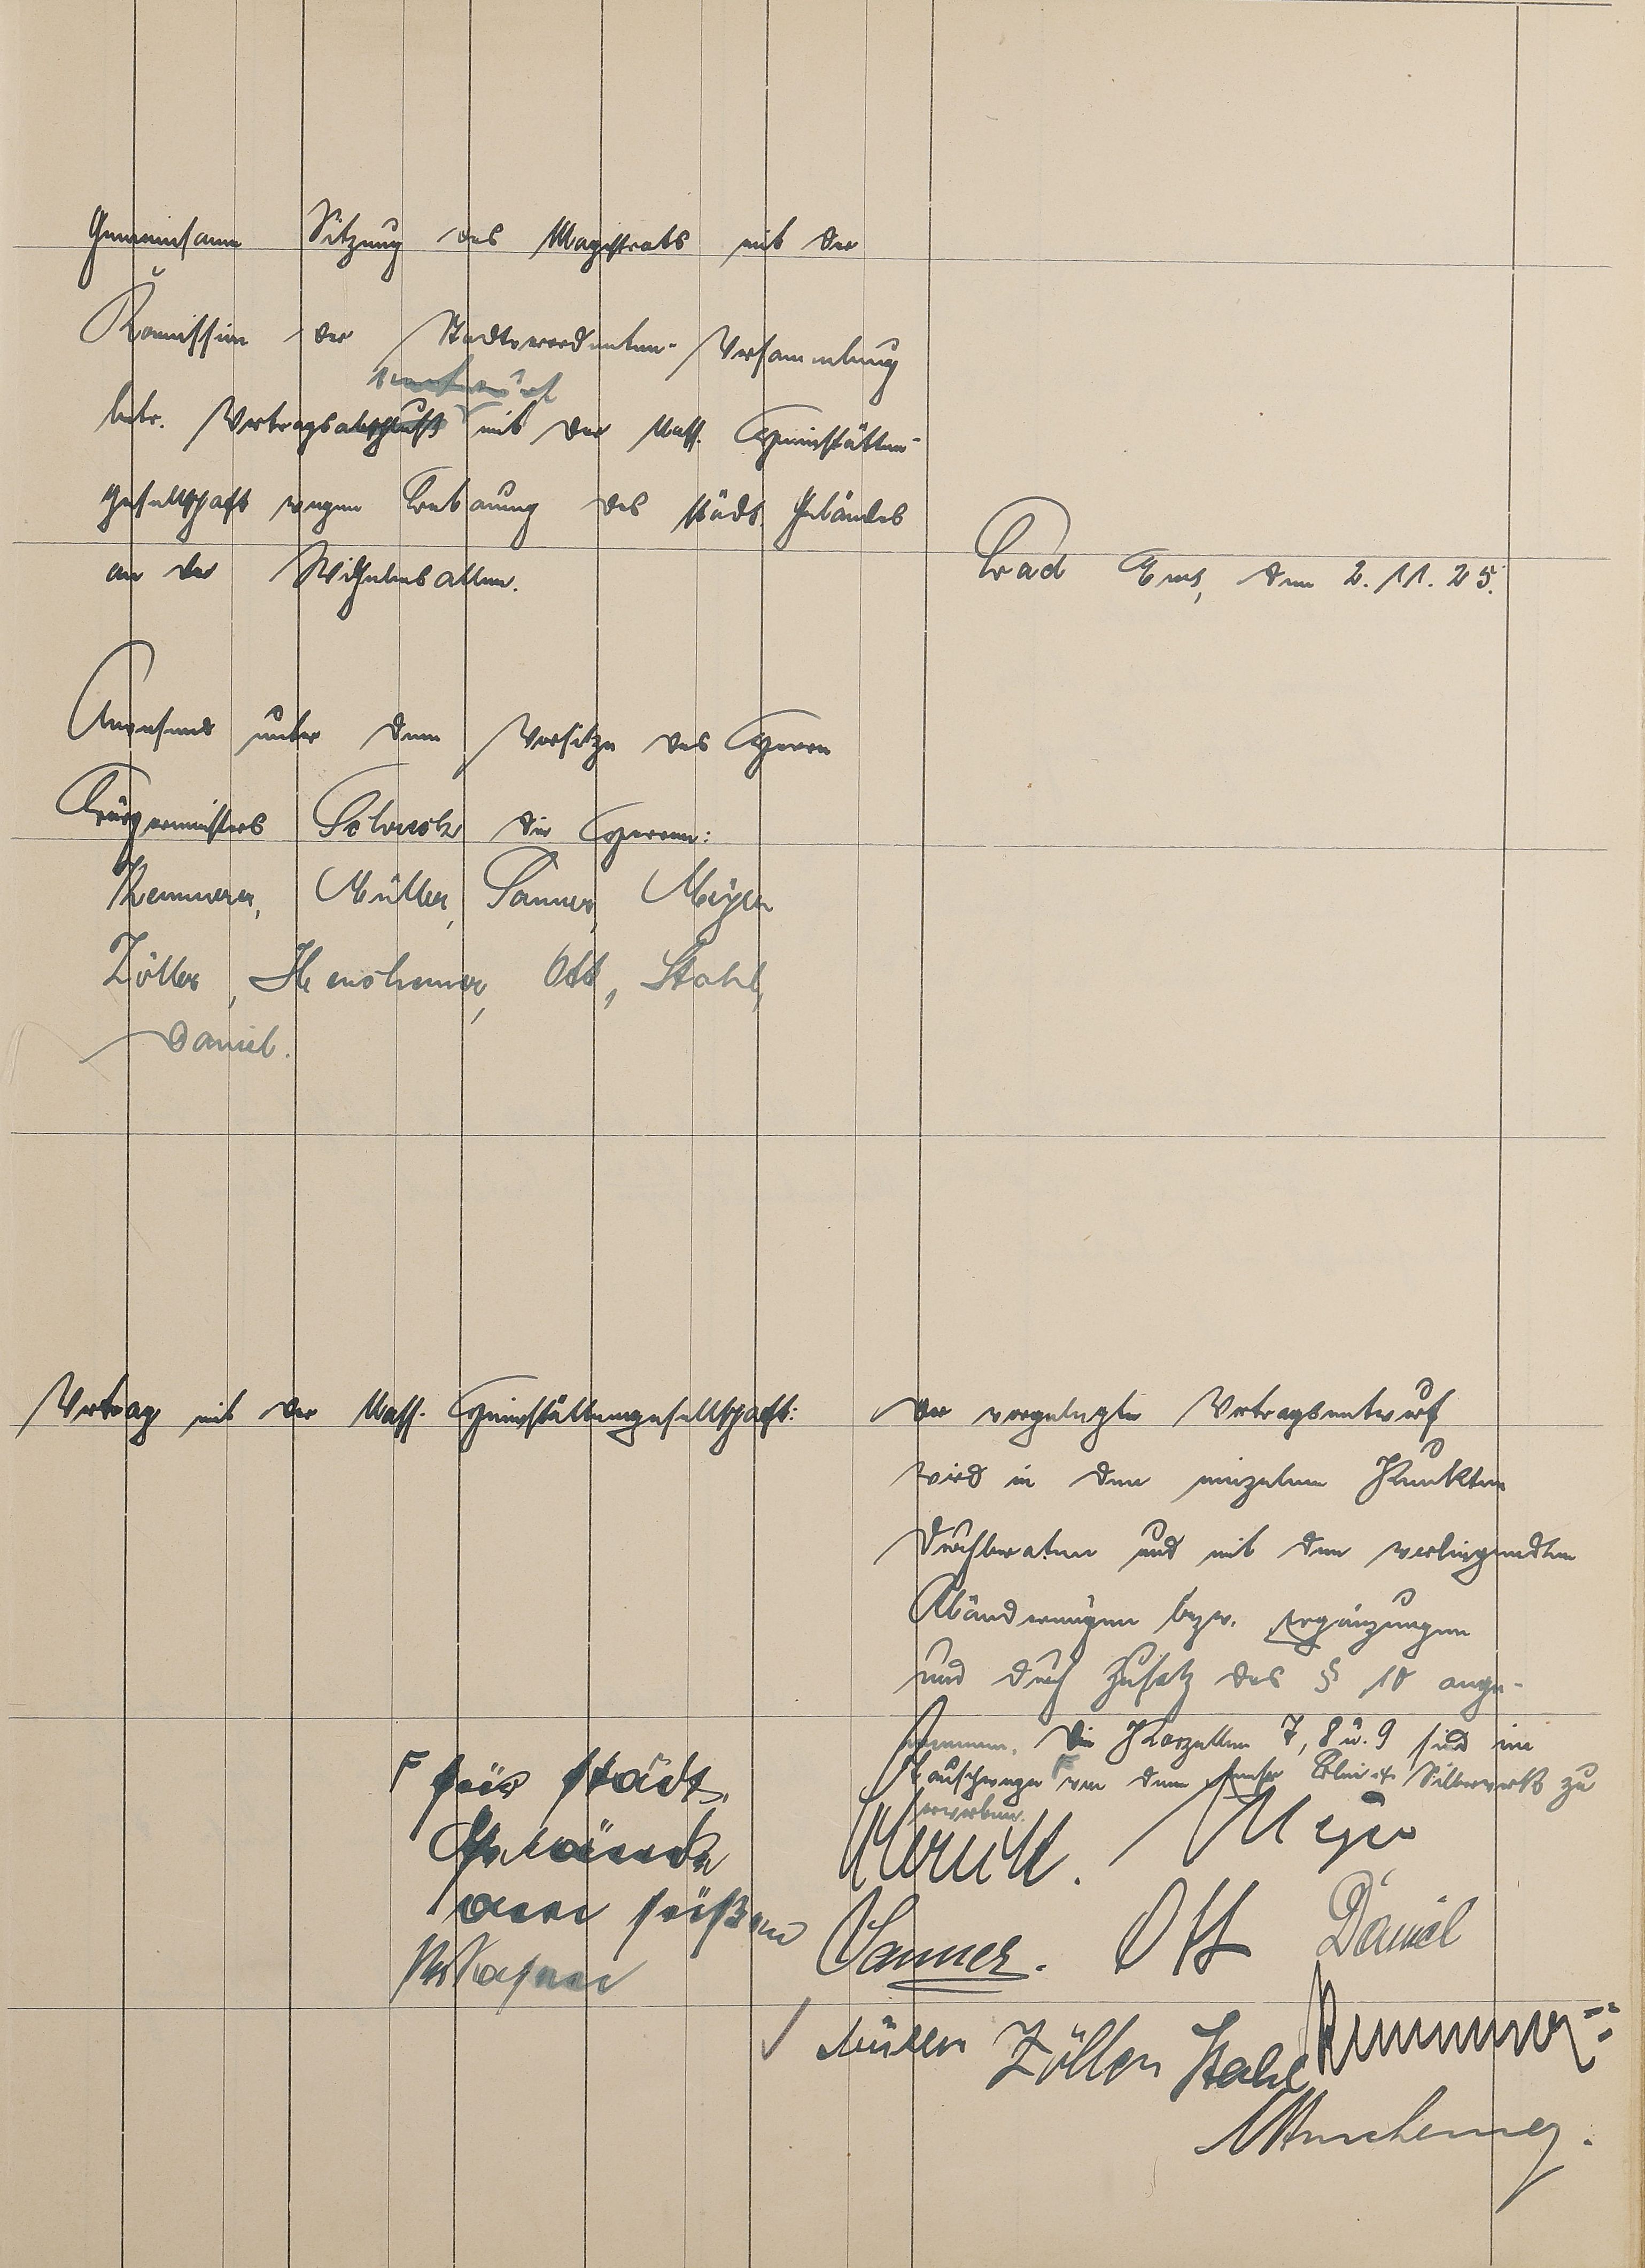 Gemeinsame Sitzung des Magistrats mit der
Komission der Stadtverordneten-Versammlung
betr. Vertragsabschluß mit der Nass. Heimstätten-
gesellschaft wegen Bebauung des städt. Geländes
an der Wilhelmsallee.
Bad Ems, den 2.11.25.
Anwesend unter dem Vorsitze des Herrn
Bürgermeisters Schruck die Herren:
Kemmerer, Müller, Sanner, Meyer
Zöller, Henshemer, Ott, Stahl,
Daniel.
Vertrag mit der Nass. Heimstättengesellschaft:
Der vorgelegte Vertragsentwurf
wird in den einzelnen Punkten
durchberaten und mit den
Abänderungen bezw. Ergänzungen
und durch Zusatz des § 10 ange-
nommen. Die Parzellen 7, 8 u. 9 sind im
Tauschwege F von dem Emser Blei u. Silberwerk zu
erwerben.
F für städt.
Gelände
am
Meyer
Sanner. Ott Daniel
Müller Zöller Stahl Kemmerer